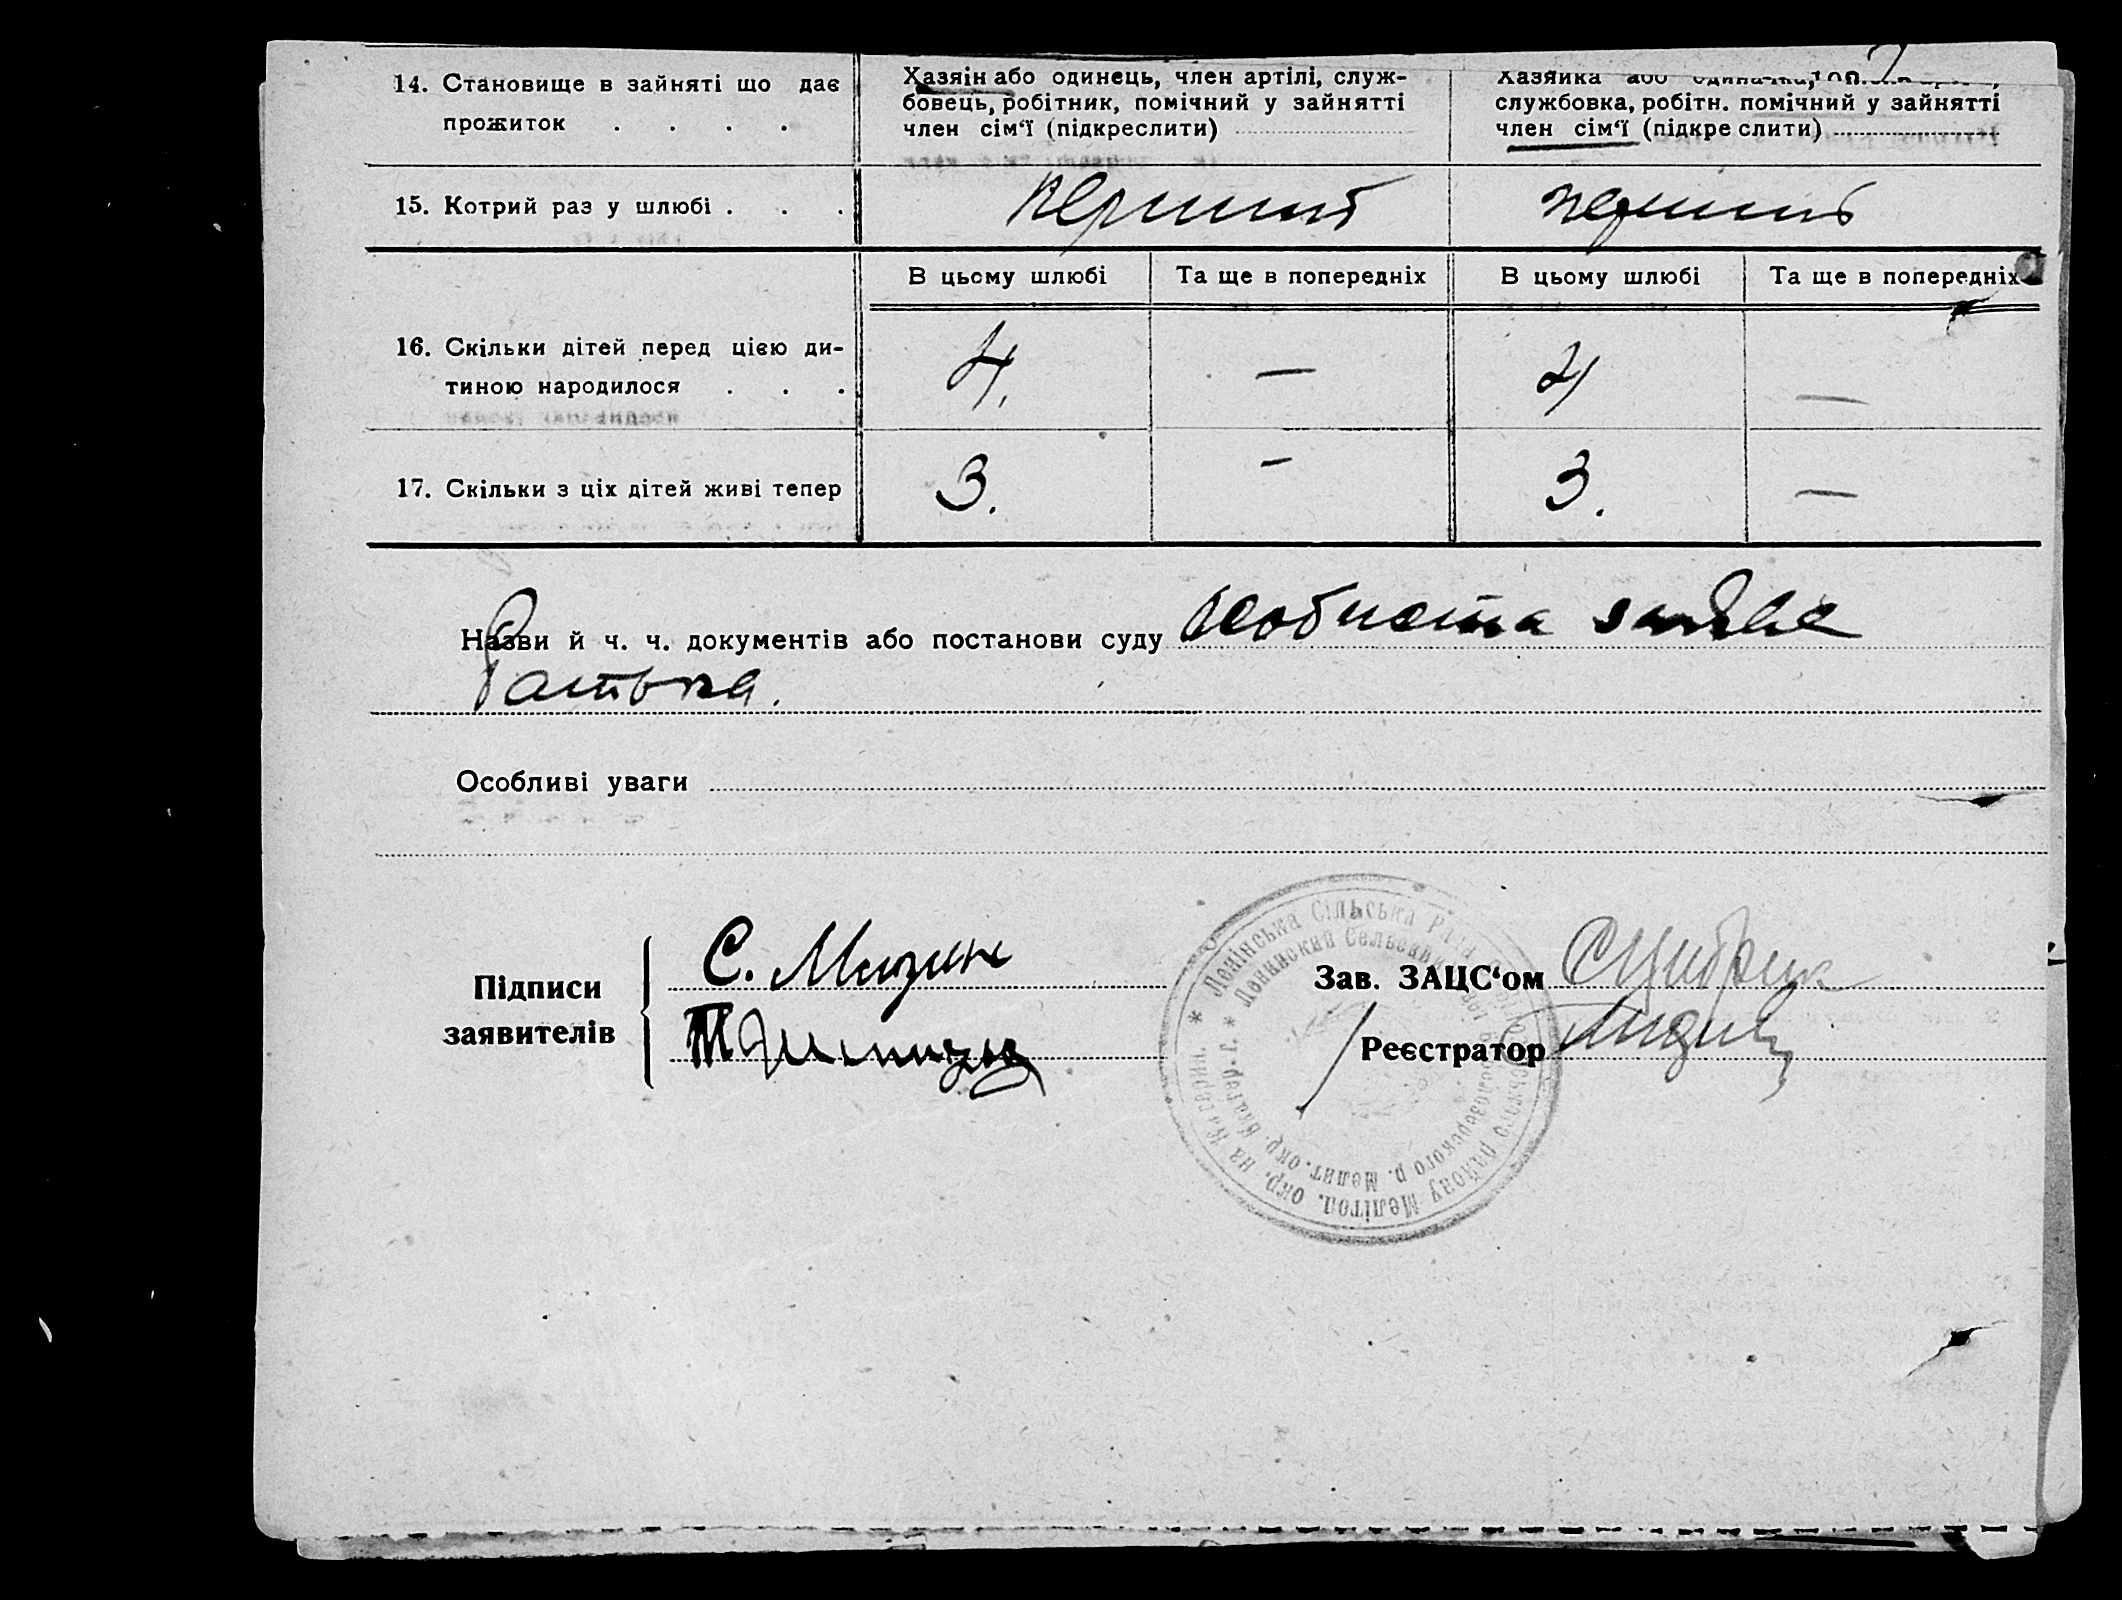 14. Становище в зайняті що дає
прожиток . . . .
Хазяін або одинець, член артілі, служ-
бовець, робітник, помічний у зайнятті
член сім'ї (підкреслити)
Хазяйка або
службовка, робітн. помічний у зайнятті
член сім'ї (підкре слити)
15. Котрий раз у шлюбі . . .
перший
перший
В цьому шлюбі
Та ще в попередніх
В цьому шлюбі
Та ще в попередніх
16. Скільки дітей перед цією ди-
тиною народилося . . .
4.
—
4
—
17. Скільки з ціх дітей живі тепер
3.
—
3.
—
Назви й ч. ч. документів або постанови суду особиста заява
батька.
Особливі уваги
Підписи
заявителів
С. Мизин
Зав. ЗАЦС'ом
Реєстратор
* Ленінська Сільська Рада району Мелітоп. окр. на Катерин.
* Ленинский Сельский р. Мелит. окр. Екатер. г.